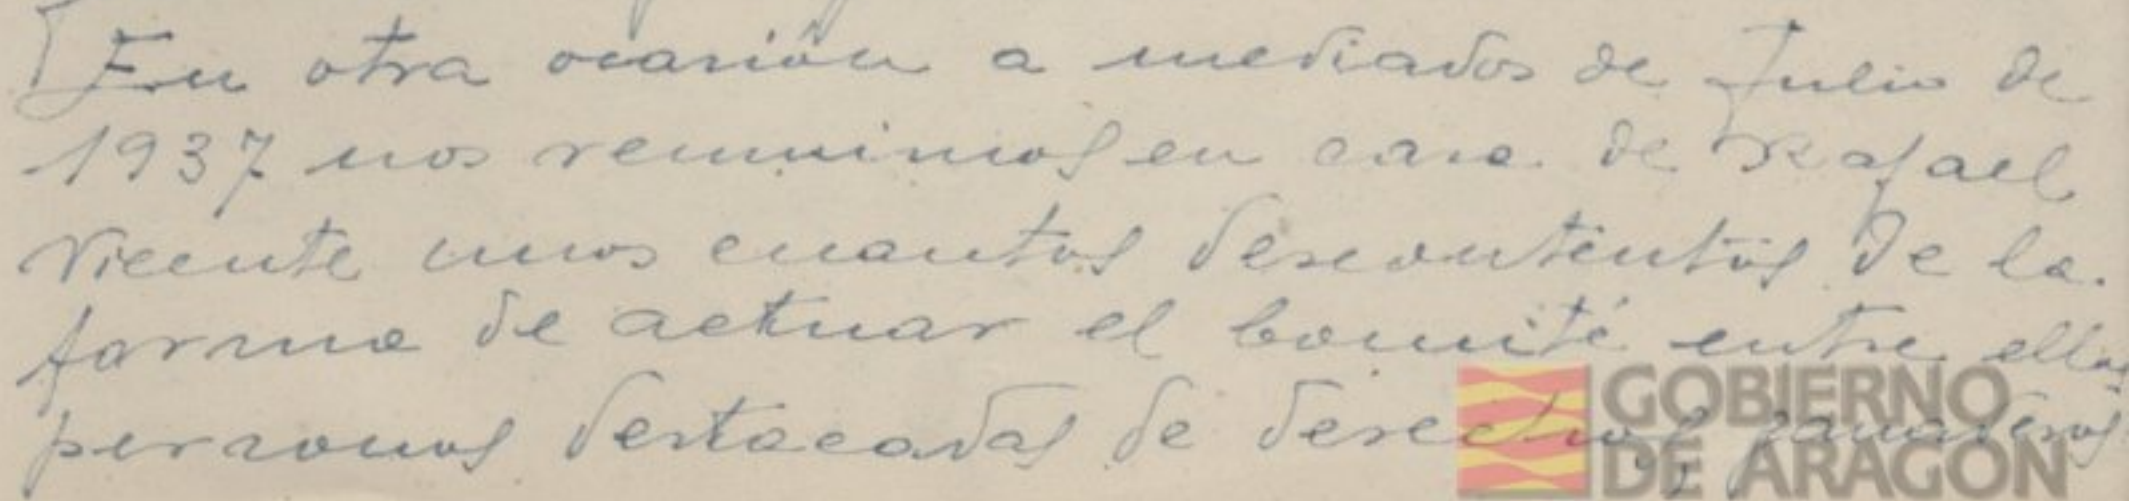 En otra ocasión a mediados de Julio de
1937 nos reunimos en casa de Rafael
Vicente unos cuantos descontentos de la
forma de actuar el Comité entre ellos
personas destacadas de derechas
GOBIERNO
DE ARAGON